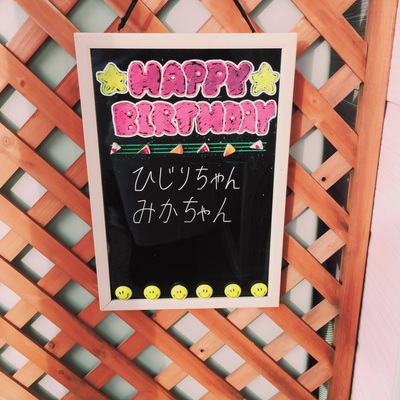 HAPPY
BIRTHDAY
ひじりちゃん
みかちゃん